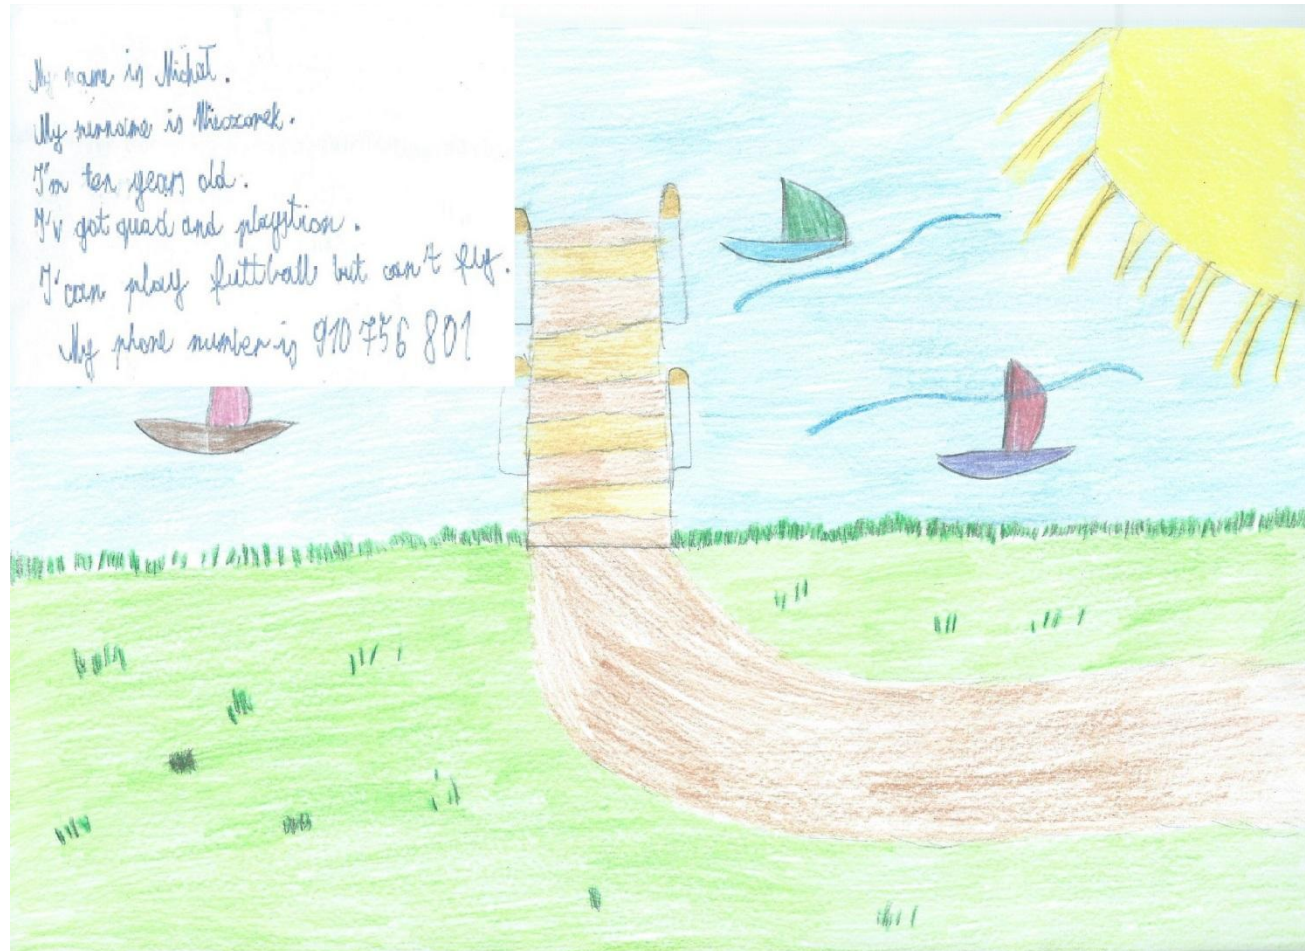 My name is Michał.
My surname is Mieszarek.
I'm ten years old.
I'v got quad and playstion.
I'can play futtball but can't fly.
My phone number is 910 756 801